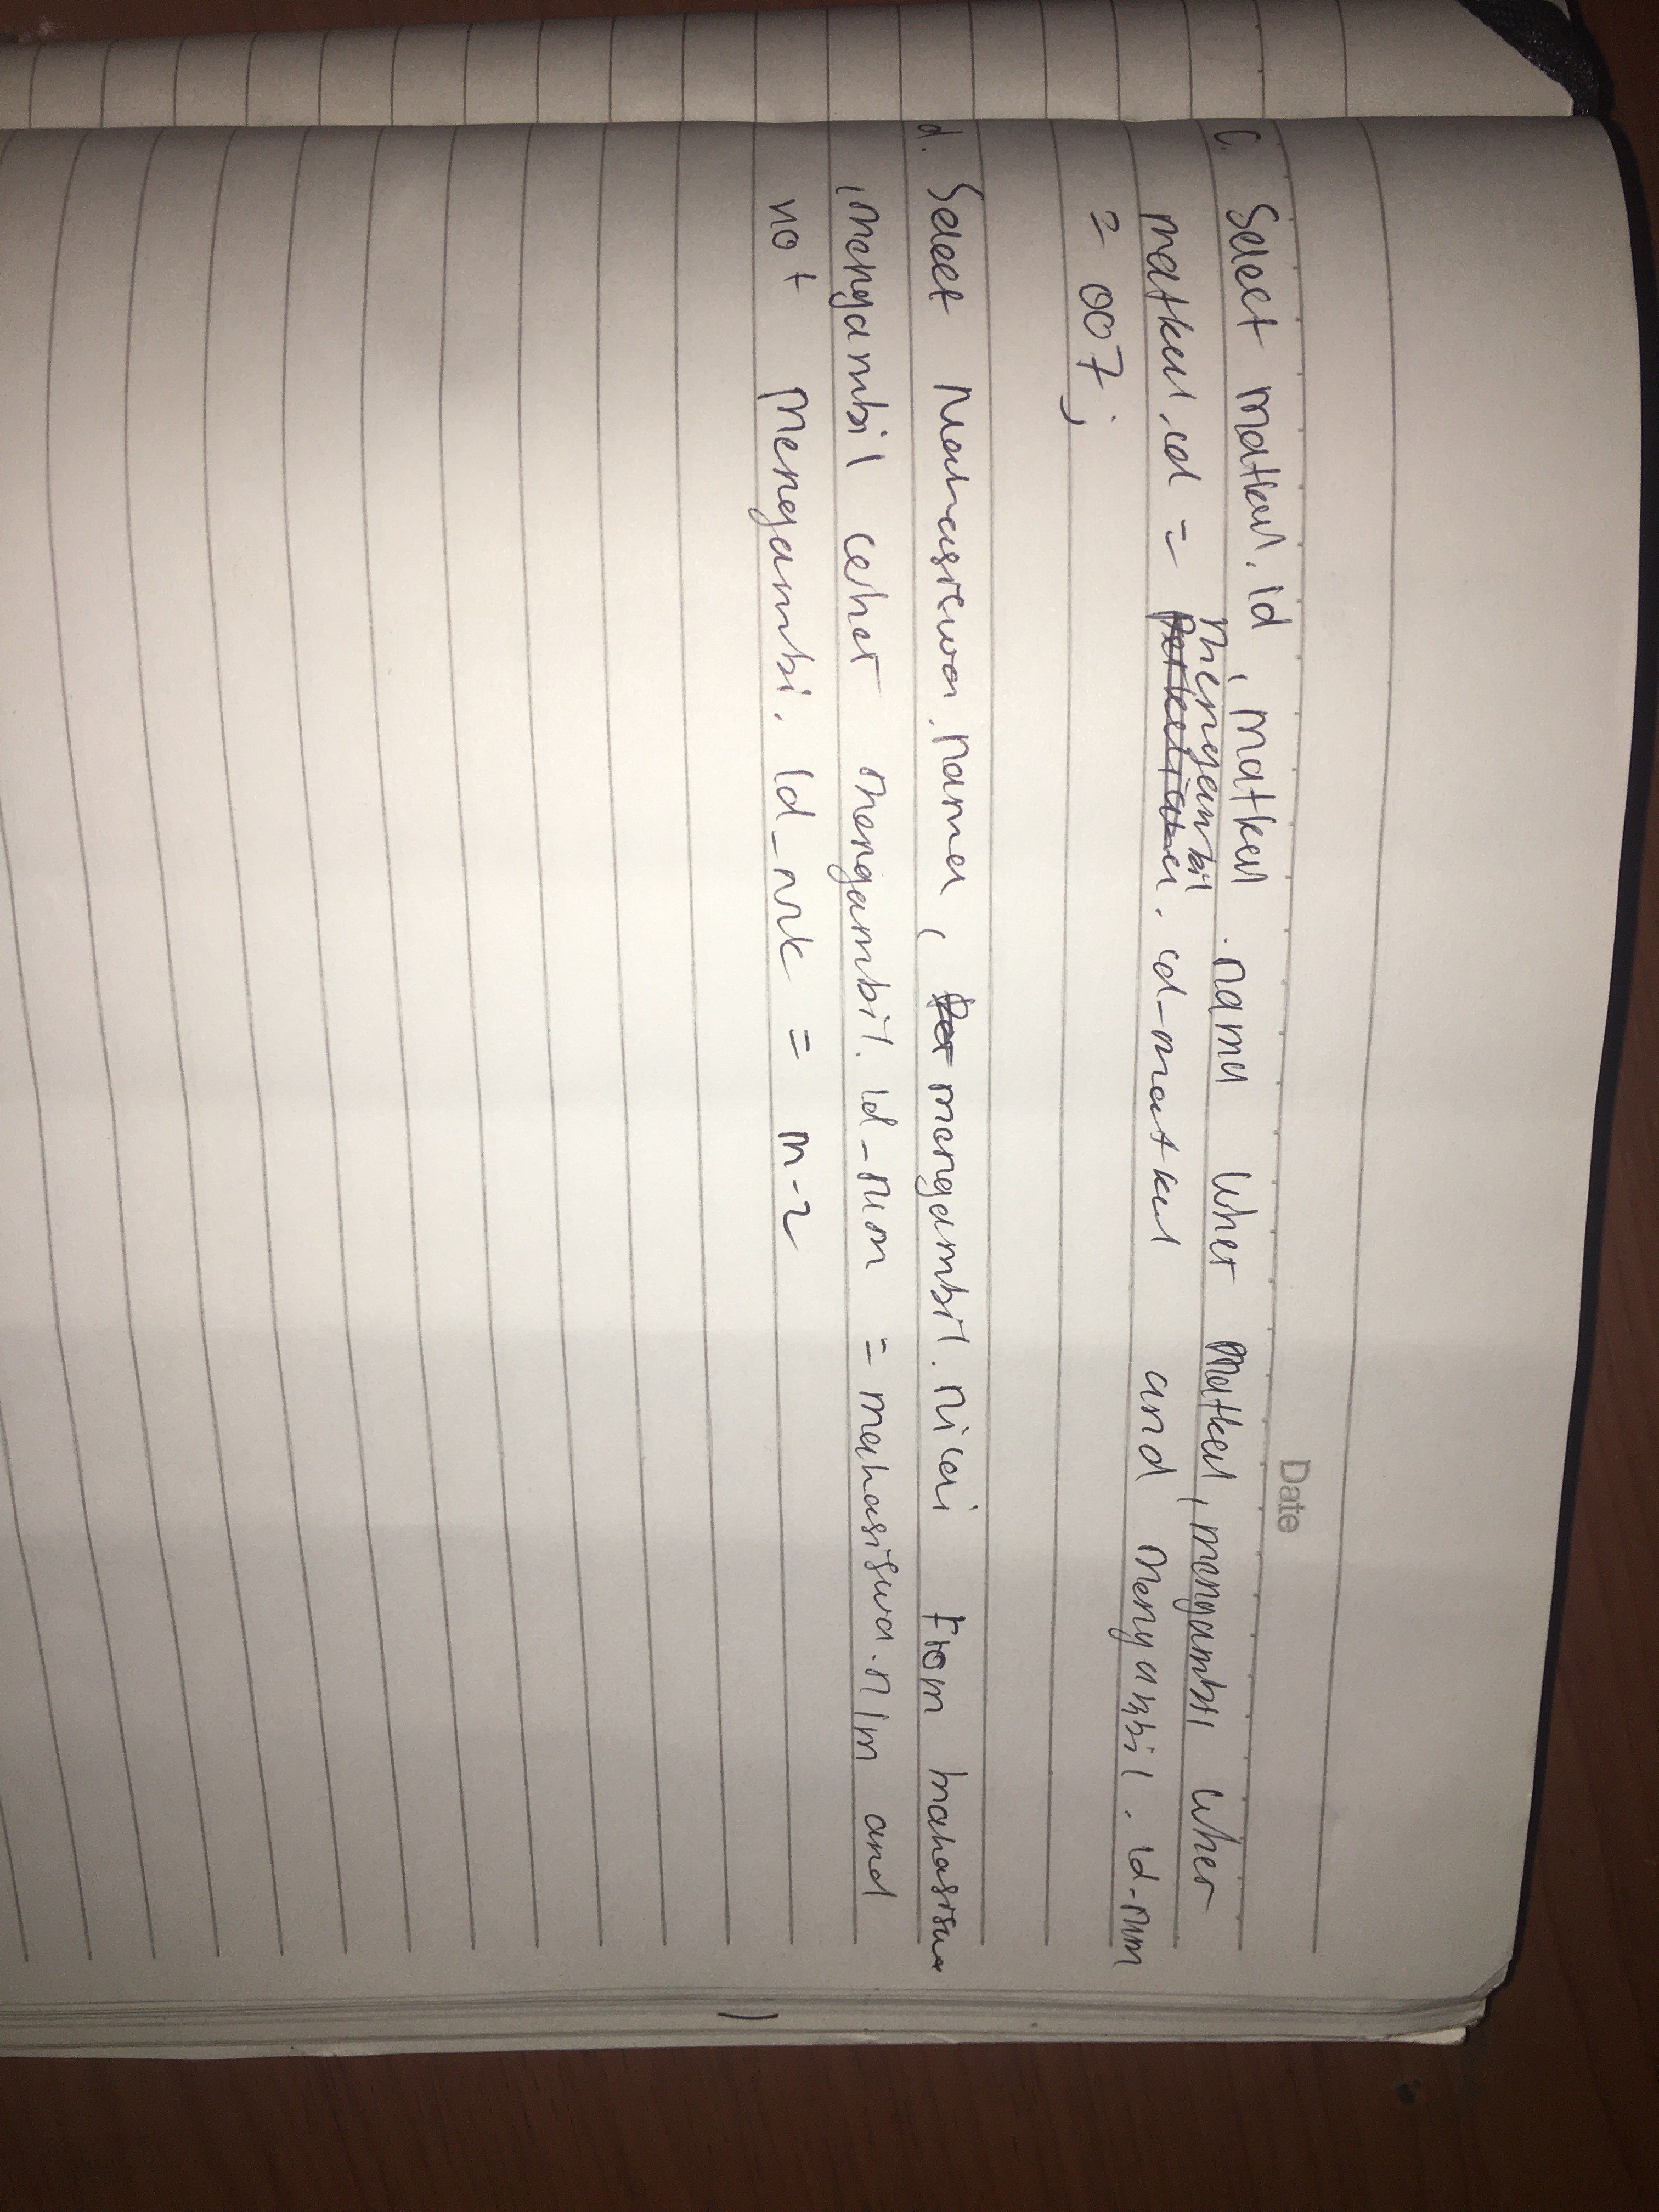 Date
c. Select matkul.id, matkul.nama wher matkul, mengambil wher
mengambil
matkul.id = perkuliahan.id-matkul and mengambil.id-nim
= 007;
d. Select Mahasiswa.nama, Per mengambil.nilai From mahasiswa
,mengambil wher mengambil.id-nim = mahasiswa.nim and
not mengambi.id_mk = m-2